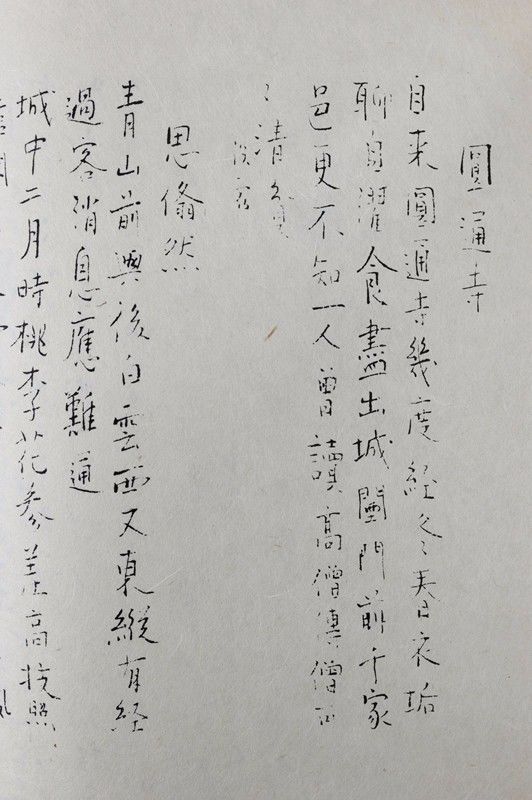 圓通寺
自来圓通寺幾度経冬春衣垢
聊自濯食盡出城闉門前千家
邑更不知一人曽讀高僧傳僧可
〻清貧
思翛然
青山前與後白雲西又東縦有経
過客消息應難通
城中二月時桃李花参差高枝照